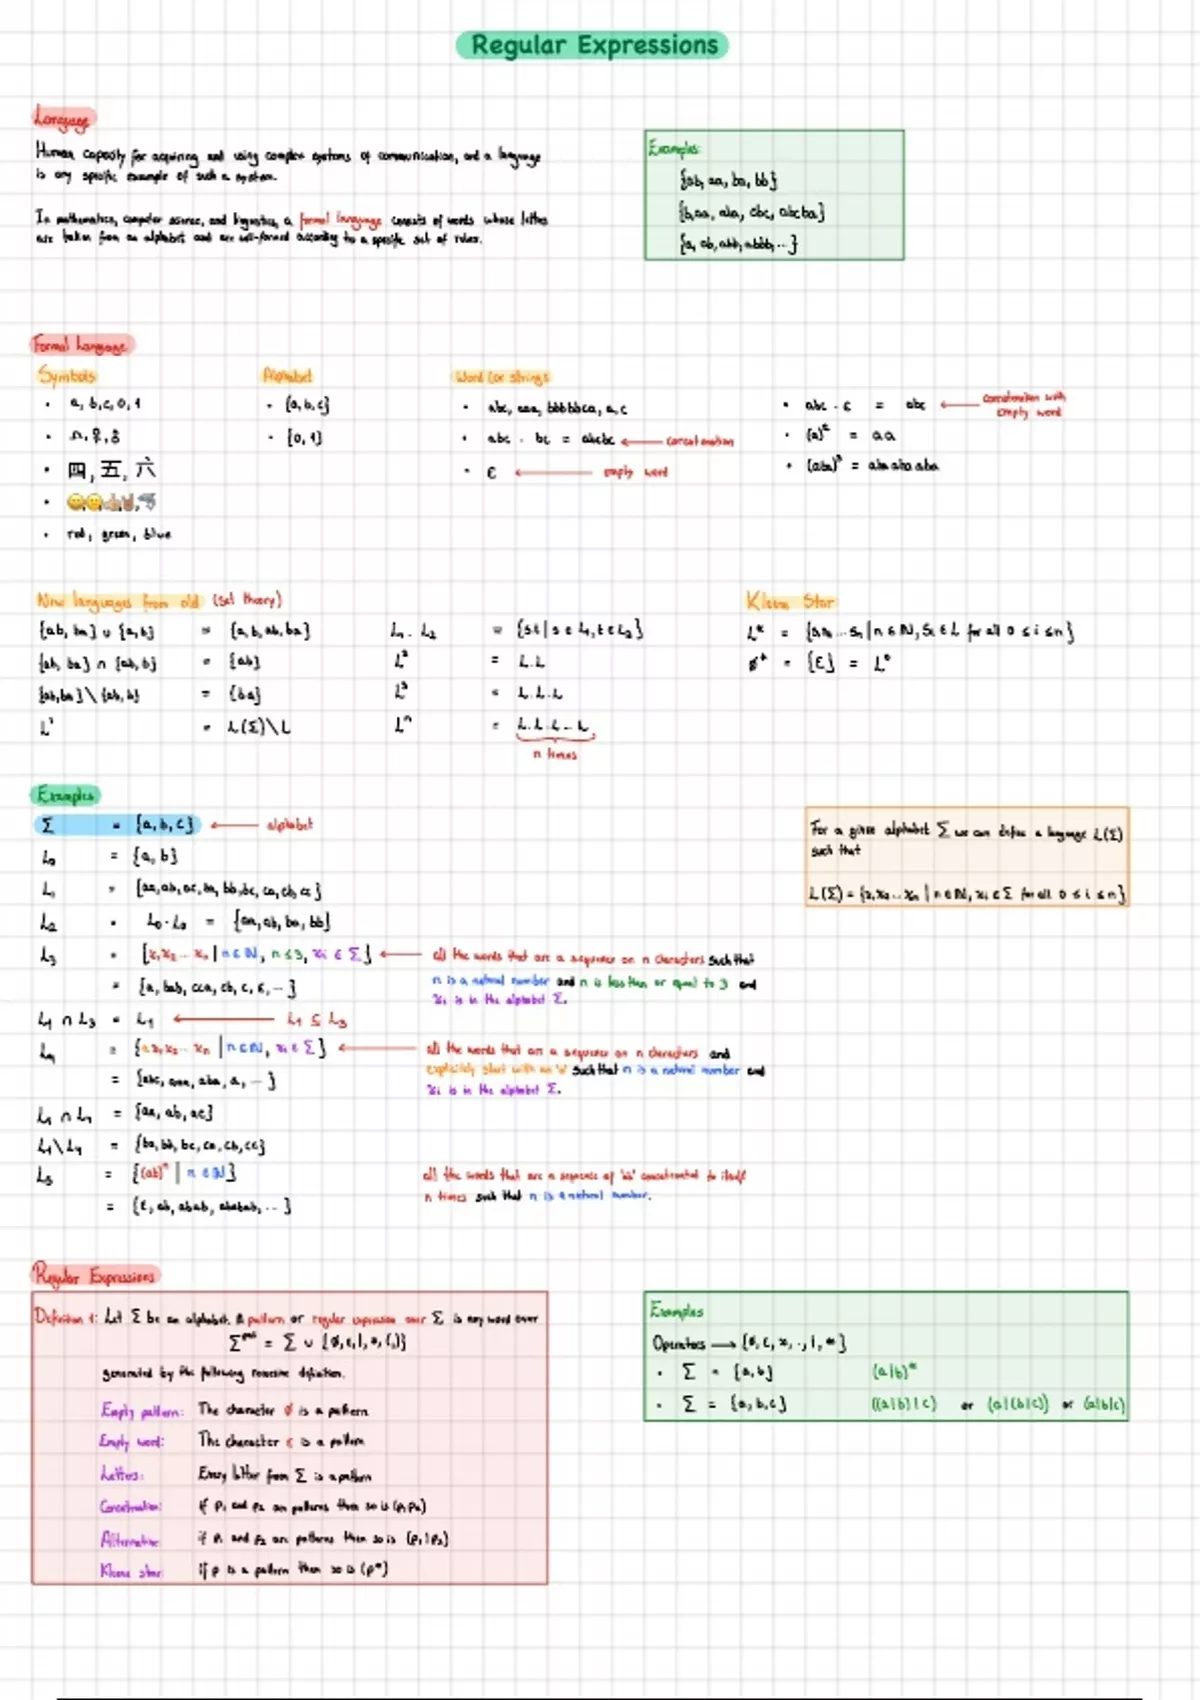 Regular Expressions
Language
Human capacity for acquiring and using complex systems of communication, and a language
is any specific example of such a system.
In mathematics, computer science, and linguistics, a formal language consists of words whose letters
are taken from an alphabet and are well-formed according to a specific set of rules.
Examples:
{ab, aa, ba, bb}
{b,aa, aba, cbc, abcba}
{a, ab, abb, abbb, ...}
Formal Language
Symbols
• a, b, c, 0, 1
• 四, 五, 六
• 
• red, green, blue
Alphabet
• {a, b, c}
• {0, 1}
Word (or strings)
• abc, aaa, bbbbbca, a, c
• abc . bc = abcbc ← concatenation
• ε ← empty word
• abc . ε = abc ← concatenation with
empty word
• (a)² = aa
• (aba)³ = aba aba aba
New languages from old (set theory)
{ab, ba} ∪ {a, b} = {a, b, ab, ba}
{ab, ba} ∩ {ab, b} = {ab}
{ab, ba} \ {ab, b} = {ba}
L' = L(Σ) \ L
L₁ . L₂ = {st | s ∈ L₁, t ∈ L₂}
L² = L.L
L³ = L.L.L
Lⁿ = L.L.L...L
n times
Kleene Star
L* = {s₁s₂...sₙ | n ∈ ℕ, sᵢ ∈ L for all 0 ≤ i ≤ n}
∅* = {ε} = L⁰
Examples
Σ = {a, b, c} ← alphabet
L₀ = {a, b}
L₁ = {aa, ab, ac, ba, bb, bc, ca, cb, cc}
L₂ = L₀ . L₀ = {aa, ab, ba, bb}
L₃ = {x₁x₂...xₙ | n ∈ ℕ, n ≤ 3, xᵢ ∈ Σ} ← all the words that are a sequence on n characters such that
n is a natural number and n is less than or equal to 3 and
xᵢ is in the alphabet Σ.
= {a, bab, cca, cb, c, ε, ...}
L₁ ∩ L₃ = L₁ ← L₁ ⊆ L₃
L₄ = {ax₁x₂...xₙ | n ∈ ℕ, xᵢ ∈ Σ} ← all the words that are a sequence on n characters and
explicitly start with an 'a' such that n is a natural number and
xᵢ is in the alphabet Σ.
= {abc, aaa, aba, a, ...}
L₁ ∩ L₄ = {aa, ab, ac}
L₁ \ L₄ = {ba, bb, bc, ca, cb, cc}
L₅ = {(ab)ⁿ | n ∈ ℕ} all the words that are a sequence of 'ab' concatenated to itself
n times such that n is a natural number.
= {ε, ab, abab, ababab, ...}
For a given alphabet Σ we can define a language L(Σ)
such that
L(Σ) = {x₁x₂...xₙ | n ∈ ℕ, xᵢ ∈ Σ for all 0 ≤ i ≤ n}
Regular Expressions
Definition 1: Let Σ be an alphabet. A pattern or regular expression over Σ is any word over
Σᵖᵃᵗ = Σ ∪ {∅, ε, |, *, (, )}
generated by the following recursive definition.
Empty pattern: The character ∅ is a pattern
Empty word: The character ε is a pattern
Letters: Every letter from Σ is a pattern
Concatenation: if p₁ and p₂ are patterns then so is (p₁p₂)
Alternative: if p₁ and p₂ are patterns then so is (p₁|p₂)
Kleene star: if p is a pattern then so is (p*)
Examples
Operators → {∅, ε, x, ., |, *}
• Σ = {a, b} (a|b)*
• Σ = {a, b, c} ((a|b)|c) or (a|(b|c)) or (a|b|c)